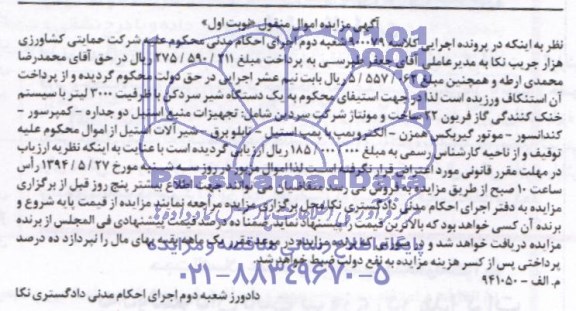 آگهی مزایده اموال منقول «نوبت اول»
نظر به اینکه در پرونده اجرایی کلاسه ۹۰۰۰۷۹ شعبه دوم اجرای احکام مدنی محکوم علیه شرکت حمایتی کشاورزی
هزار جریب نکا به مدیر عاملی آقای جعفر طبرسی به پرداخت مبلغ ۲۱۱ / ۵۹۰ / ۲۷۵ ریال در حق آقای محمدرضا
محمدی ارطه و همچنین مبلغ ۵ / ۵۵۷ / ریال بابت نیم عشر اجرایی در حق دولت محکوم گردیده و از پرداخت
آن استنکاف ورزیده است لذا در جهت استیفای محکوم به یک دستگاه شیر سردکن با ظرفیت ۳۰۰۰ لیتر با سیستم
خنک کنندگی گاز فریون ۲۲ ساخت و مونتاژ شرکت سردین شامل: تجهیزات منبع استیل دو جداره - کمپرسور -
کندانسور - موتور گیربکس همزن - الکتروپمپ با پمپ استیل - تابلو برق - شیرآلات استیل از اموال محکوم علیه
توقیف و از ناحیه کارشناس رسمی به مبلغ ۱۸۵/۰۰۰/۰۰۰ ریال ارزیابی گردیده است با عنایت به اینکه نظریه ارزیاب
در مهلت مقرر قانونی مورد اعتراض قرار نگرفته است لذا اموال مزبور در روز سه شنبه مورخ ۱۳۹۴/۵/۲۷ رأس
ساعت ۱۰ صبح از طریق مزایده به فروش اطلاع بیشتر پنج روز قبل از برگزاری
مزایده به دفتر اجرای احکام مدنی دادگستری نکا محل برگزاری مزایده مراجعه نمایند مزایده از قیمت پایه شروع و
برنده آن کسی خواهد بود که بالاترین قیمت را پیشنهاد نماید ضمنا ده درصد قیمت پیشنهادی فی المجلس از برنده
مزایده دریافت خواهد شد و در صورتی که برنده مزایده در موعد مقرر یک ماهه بقیه بهای مال را نپردازد ده درصد
پرداختی پس از کسر هزینه مزایده به نفع دولت ضبط خواهد شد.
م. الف - ۹۴۱۰۵۰
دادورز شعبه دوم اجرای احکام مدنی دادگستری نکا
ParsNamadData
پایگاه اطلاع رسانی مناقصه و مزایده
۰۲۱-۸۸۳۴۹۶۷۰-۵